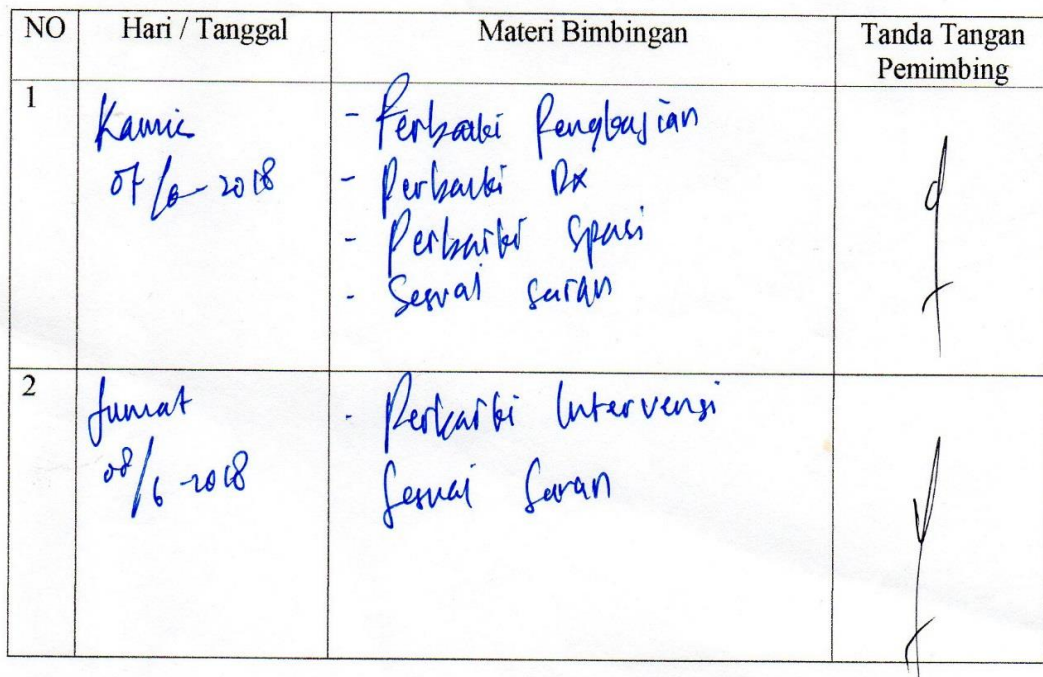 NO Hari / Tanggal Materi Bimbingan Tanda Tangan
Pemimbing
1
Kamis - Perbaiki Pengkajian
07/6-2018 - Perbaiki Dx
- Perbaiki Spasi
- Sesuai saran
2
Jumat - Perbaiki Intervensi
08/6-2018 Sesuai Saran